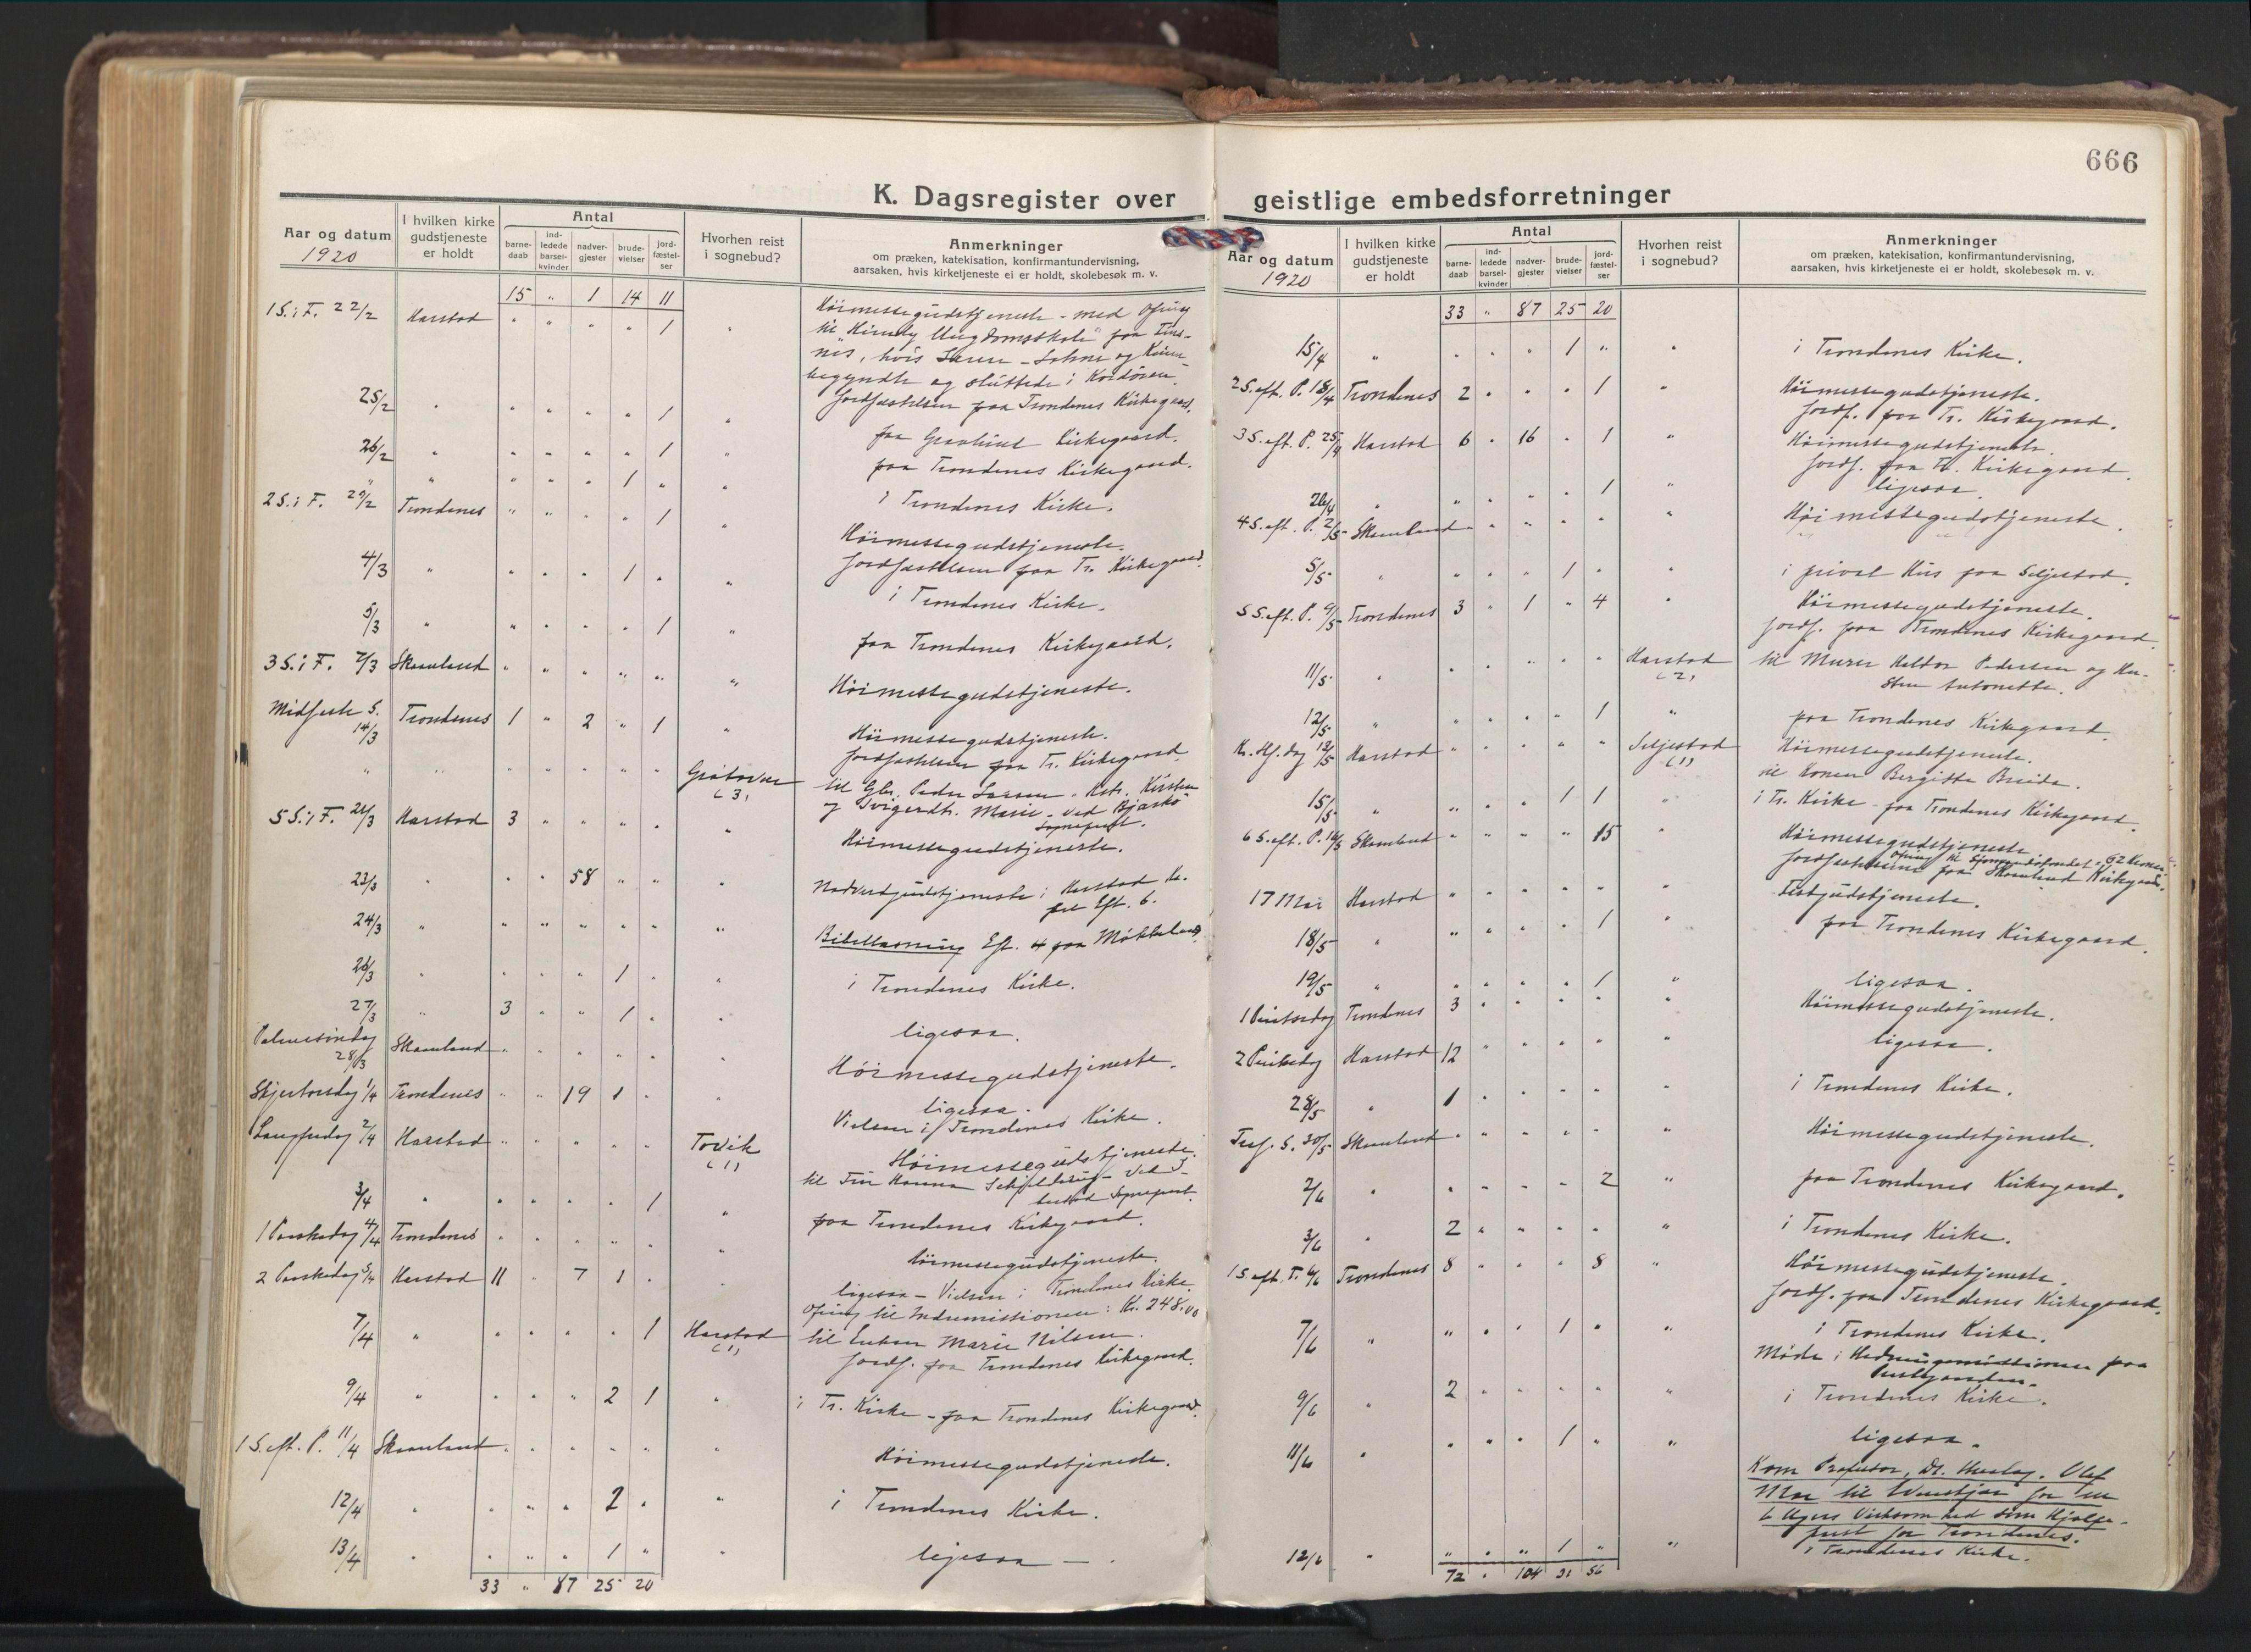 666
K. Dagsregister over geistlige embedsforretninger
Aar og datum
1920
I hvilken kirke gudstjeneste er holdt
Antal
barnedaab
indledede barselkvinder
nadvergjester
brudevielser
jordfæstelser
Hvorhen reist i sognebud?
Anmerkninger
om præken, katekisation, konfirmantundervisning,
aarsaken, hvis kirketjeneste ei er holdt, skolebesøk m. v.
15 " 1 14 11
1 S. i F. 22/2 Harstad " " " " 1 " Høimessegudstjeneste - med Ofring
til "Kirkelig Ungdomsskole" paa
begyndte og sluttede i Kordøren.
Jordfæstelsen paa Trondenes Kirkegaard.
25/2 " " " " " 1 " paa Kirkegaard.
26/2 " " " " " 1 " paa Trondenes Kirkegaard.
" " " " " 1 " " i Trondenes Kirke.
2 S. i F. 29/2 Trondenes " " " " 1 " Høimessegudstjeneste.
Jordfæstelsen paa Tr. Kirkegaard.
4/3 " " " " 1 " " i Trondenes Kirke.
5/3 " " " " " 1 " paa Trondenes Kirkegaard.
3 S. i F. 7/3 Skaanland " " " " " " Høimessegudstjeneste.
Midfaste S.
14/3 Trondenes 1 " 2 " 1 " Høimessegudstjeneste.
Jordfæstelsen paa Tr. Kirkegaard.
" " " " " " " Grøtavær
(3) til Gbr. Peder Larsen
Marie - ved Bjarkø
Sogneprest.
5 S. i F. 21/3 Harstad 3 " " " " " Høimessegudstjeneste.
23/3 " " " 58 " " " Nadverdgudstjeneste i Harstad K.
Eft. 6.
24/3 " " " " " " " Bibellæsning Eft. 4 paa
26/3 " " " " 1 " " i Trondenes Kirke.
27/3 " 3 " " 1 " " ligesaa.
Palmesøndag
28/3 Skaanland " " " " " " Høimessegudstjeneste.
Skjærtorsdag 1/4 Trondenes " " 19 1 " " ligesaa.
Vielsen i Trondenes Kirke.
Langfredag 2/4 Harstad " " " " " Tovik
(1) Høimessegudstjeneste.
til Hanna
Sogneprest.
3/4 " " " " " 1 " paa Trondenes Kirkegaard.
1 Paaskedag 4/4 Trondenes " " " " " " Høimessegudstjeneste.
2 Paaskedag 5/4 Harstad 11 " 7 1 " " ligesaa - Vielsen i Trondenes Kirke.
Ofring til Indremissionen: Kr. 248.00
7/4 " " " " " 1 Harstad
(1) til Enken Marie Nilsen.
Jordf. paa Trondenes Kirkegaard.
9/4 " " " " 2 1 " i Tr. Kirke - paa Trondenes Kirkegaard.
1 S. eft. P. 11/4 Skaanland " " " " " " Høimessegudstjeneste.
12/4 " " " " 2 " " i Trondenes Kirke.
13/4 " " " " 1 " " ligesaa
33 " 87 25 20
Aar og datum
1920
I hvilken kirke gudstjeneste er holdt
Antal
barnedaab
indledede barselkvinder
nadvergjester
brudevielser
jordfæstelser
Hvorhen reist i sognebud?
Anmerkninger
om præken, katekisation, konfirmantundervisning,
aarsaken, hvis kirketjeneste ei er holdt, skolebesøk m. v.
33 " 87 25 20
15/4 " " " " 1 " " i Trondenes Kirke.
2 S. eft. P. 18/4 Trondenes 2 " " " 1 " Høimessegudstjeneste.
Jordf. paa Tr. Kirkegaard.
3 S. eft. P. 25/4 Harstad 6 " 16 " 1 " Høimessegudstjeneste.
Jordf. paa Tr. Kirkegaard.
26/4 " " " " " 1 " ligesaa.
4 S. eft. P. 2/5 Skaanland " " " " " " Høimessegudstjeneste.
5/5 " " " " 1 " " i privat Hus paa Seljestad.
5 S. eft. P. 9/5 Trondenes 3 " 1 " 4 " Høimessegudstjeneste.
Jordf. paa Trondenes Kirkegaard.
11/5 " " " " " " Harstad
(2) til Murer Haldor Pedersen og Hu-
stru Antonette.
12/5 " " " " " 1 " paa Trondenes Kirkegaard.
Kr. Hf. dag 13/5 Harstad " " " " " Seljestad
(1) Høimessegudstjeneste.
til Konen Bergitte
15/5 " " " " 1 1 " i Tr. Kirke - paa Trondenes Kirkegaard.
6 S. eft. P. 16/5 Skaanland " " " " 15 " Høimessegudstjeneste.
Ofring til 62 Kroner.
Jordfæstelserne paa Skaanland Kirkegaard.
17 Mai Harstad " " " " " " Festgudstjeneste.
18/5 " " " " " 1 " paa Trondenes Kirkegaard.
19/5 " " " " " 1 " ligesaa.
1 Pintsedag Trondenes 3 " " " " " Høimessegudstjeneste.
2 Pintsedag Harstad 12 " " " " " ligesaa.
28/5 " 1 " " " " " i Trondenes Kirke.
Tref. S. 30/5 Skaanland " " " " " " Høimessegudstjeneste.
2/6 " " " " " 2 " paa Trondenes Kirkegaard.
3/6 " 2 " " " " " i Trondenes Kirke.
1 S. eft. T. 6/6 Trondenes 8 " " " 8 " Høimessegudstjeneste.
Jordf. paa Trondenes Kirkegaard.
7/6 " " " " 1 " " i Trondenes Kirke.
Møde i Hedningemissionen paa
Prestgaarden.
9/6 " 2 " " " " " i Trondenes Kirke.
11/6 " " " " 1 " " ligesaa.
Kom Professor, Dr. theolog. Olaf
Moe til for en
6 Ugers Virksomhed som Hjælpe-
prest for Trondenes.
12/6 " " " " 1 " " i Trondenes Kirke.
72 " 104 31 56